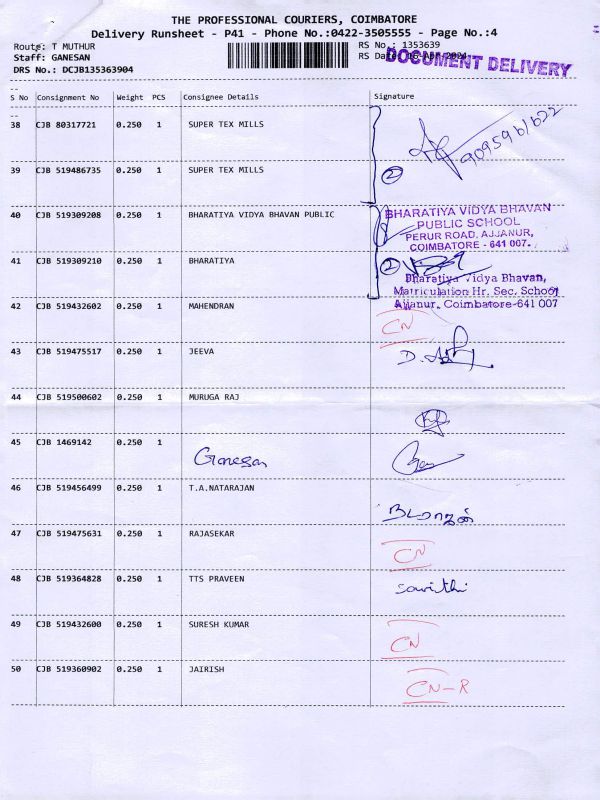 THE PROFESSIONAL COURIERS, COIMBATORE
Delivery Runsheet - P41 - Phone No.:0422-3505555 - Page No.:4
Route: T MUTHUR
RS No.: 1353639
Staff: GANESAN
RS Date
DOCUMENT DELIVERY
DRS No.: DCJB135363904
S No Consignment No Weight PCS Consignee Details Signature
38 CJB 80317721 0.250 1 SUPER TEX MILLS
9095961622
39 CJB 519486735 0.250 1 SUPER TEX MILLS
2
40 CJB 519309208 0.250 1 BHARATIYA VIDYA BHAVAN PUBLIC
BHARATIYA VIDYA BHAVAN
PUBLIC SCHOOL
PERUR ROAD, AJJANUR,
COIMBATORE - 641 007.
41 CJB 519309210 0.250 1 BHARATIYA
2
Bharatiya Vidya Bhavan,
Matriculation Hr. Sec. School
Ajjanur, Coimbatore-641 007
42 CJB 519432602 0.250 1 MAHENDRAN
CN
43 CJB 519475517 0.250 1 JEEVA
44 CJB 519500602 0.250 1 MURUGA RAJ
45 CJB 1469142 0.250 1
Ganesan
46 CJB 519456499 0.250 1 T.A.NATARAJAN
நடராஜன்
47 CJB 519475631 0.250 1 RAJASEKAR
CN
48 CJB 519364828 0.250 1 TTS PRAVEEN
Savithi
49 CJB 519432600 0.250 1 SURESH KUMAR
CN
50 CJB 519360902 0.250 1 JAIRISH
CN-R